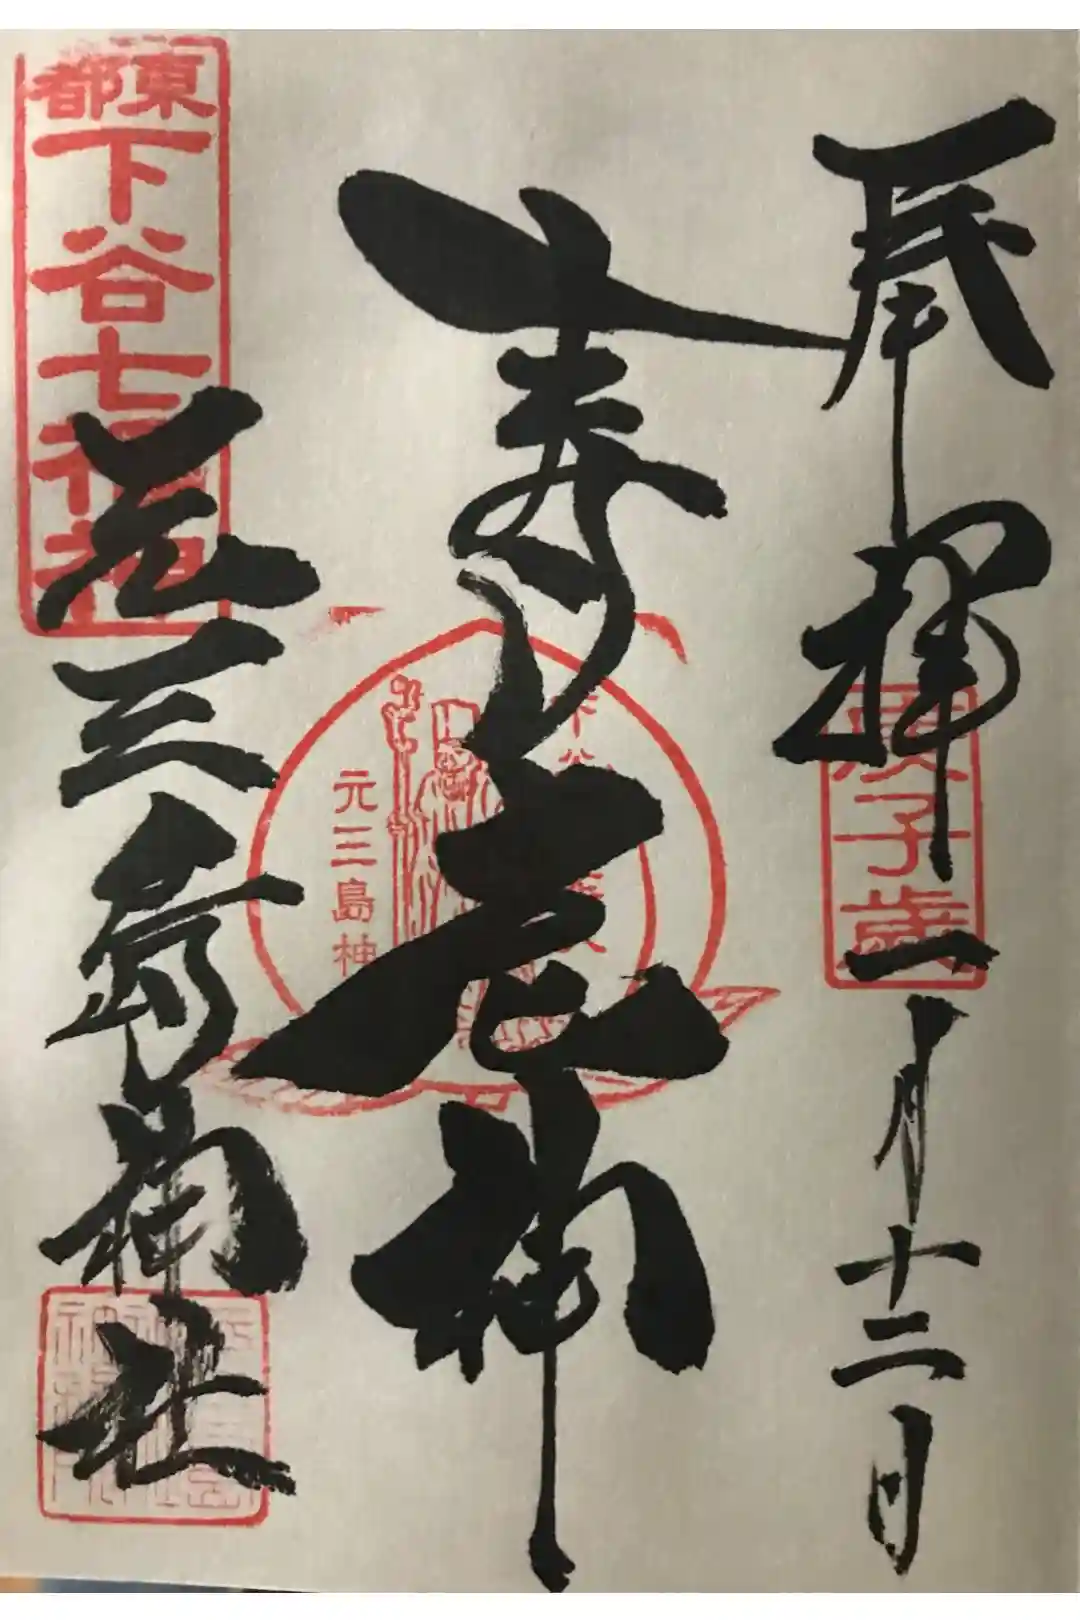 奉拝
庚子歳
一月十二日
寿老神
下谷
元三島神
東都
下谷七福神
元三島神社